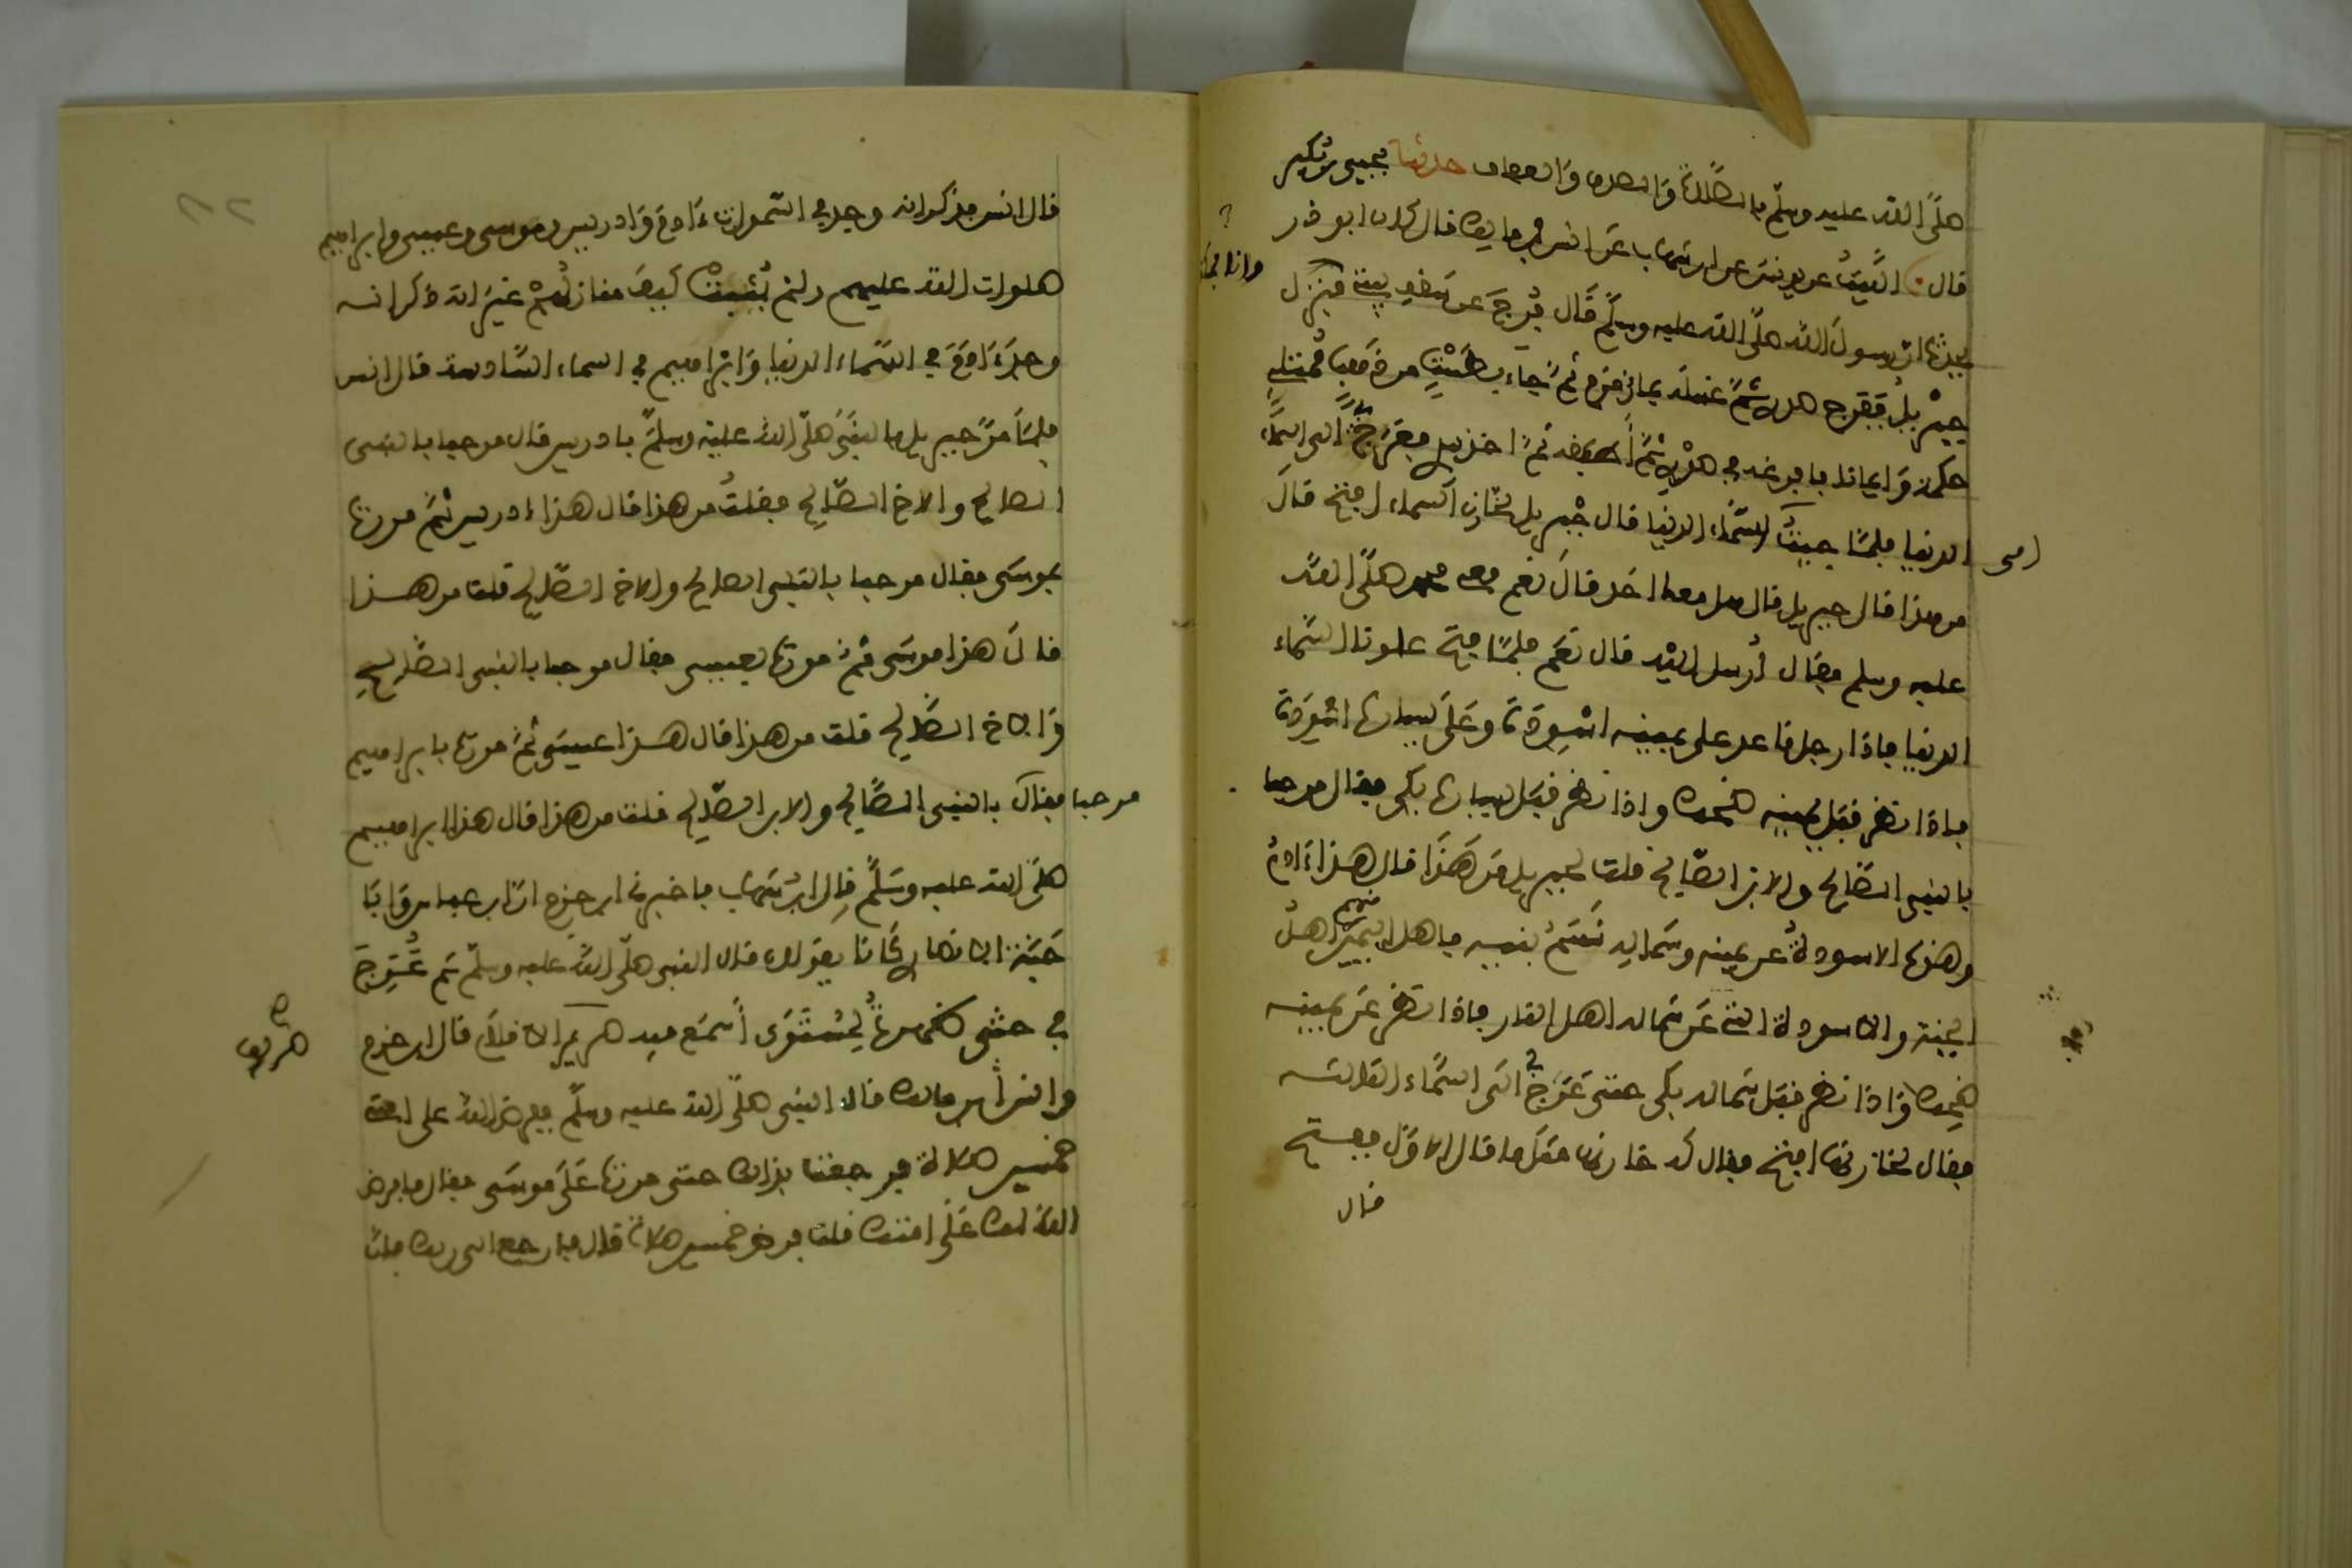 صلَّى الله عليه وسلم بالصَّلاة والصدق والعفاف حدثنا يحيى بن بُكير
قال الليثُ عن يونس عن ابن شهاب عن انس بن مالك قال كان ابو ذر
يحدث ان رسول الله صلى الله عليه وسلم قال فُرِجَ عن سقف بيتي فنزل
وانا بمكة
جبريل ففرج صدري ثمَّ غسله بماء زمزم ثم جاء بطَسْتٍ من ذهب ممتلئ
حكمة وايمانا فافرغه في صدري ثم اطبقه ثم اخذ بيدي فعرج بي الى السماء
الدنيا فلما جيت الى السماء الدنيا قال جبريل لخازن السماء افتح قال
من هذا قال جبريل قال هل معك احد قال نعم معي محمد صلى الله
عليه وسلم فقال أرسل اليه قال نعم فلما فتح علونا السماء
الدنيا فاذا رجل قاعد على يمينه اسْوِدَة وعلى يساره اسْوِدَة
فاذا نظر قبل يمينه ضحك واذا نظر قبل يساره بكى فقال مرحبا
بالنبي الصالح والابن الصالح قلت لجبريل من هذا قال هذا ءادم
وهذه الاسودة عن يمينه وشماله نَسَمُ بنيه فاهل اليمين منهم اهل
الجنة والاسودة التي عن شماله اهل النار فاذا نظر عن يمينه
ضحك واذا نظر قبل شماله بكى حتى عَرَج بي الى السماء الثانية
فقال لخازنها افتح فقال له خازنها مثل ما قال الاول ففتح
قال
قال انس فذكر انه وجد في السموات ءادم وادريس وموسى وعيسى وابراهيم
صلوات الله عليهم ولم يُثبِتْ كيف منازلُهم غير انه ذكر انه
وجد ءادم في السماء الدنيا وابراهيم في السماء السادسة قال انس
فلما مر جبريل بالنبي صلى الله عليه وسلم بادريس قال مرحبا بالنبي
الصالح والاخ الصالح فقلتُ من هذا قال هذا ادريس ثم مررت
بموسى فقال مرحبا بالنبي الصالح والاخ الصالح قلت من هذا
قال هذا موسى ثم مررت بعيسى فقال مرحبا بالنبي الصالح
والاخ الصالح قلت من هذا قال هذا عيسى ثم مررت بابراهيم
فقال مرحبا بالنبي الصالح والابن الصالح قلت من هذا قال هذا ابراهيم
صلى الله عليه وسلم قال ابن شهاب فاخبرني ابن حزم ان ابن عباس وابا
حَبَّة الانصاري كانا يقولان قال النبي صلى الله عليه وسلم ثم عُرِجَ
بي حتى ظهرتُ لِمُسْتَوَى أسمع فيه صريف الاقلام قال ابن حزم
صريف
وانس بن مالك قال النبي صلى الله عليه وسلم ففرض الله على امتي
خمسين صلاة فرجعت بذلك حتى مررت على موسى فقال ما فرض
الله لك على امتك قلت فرض خمسين صلاة قال فارجع الى ربك فان